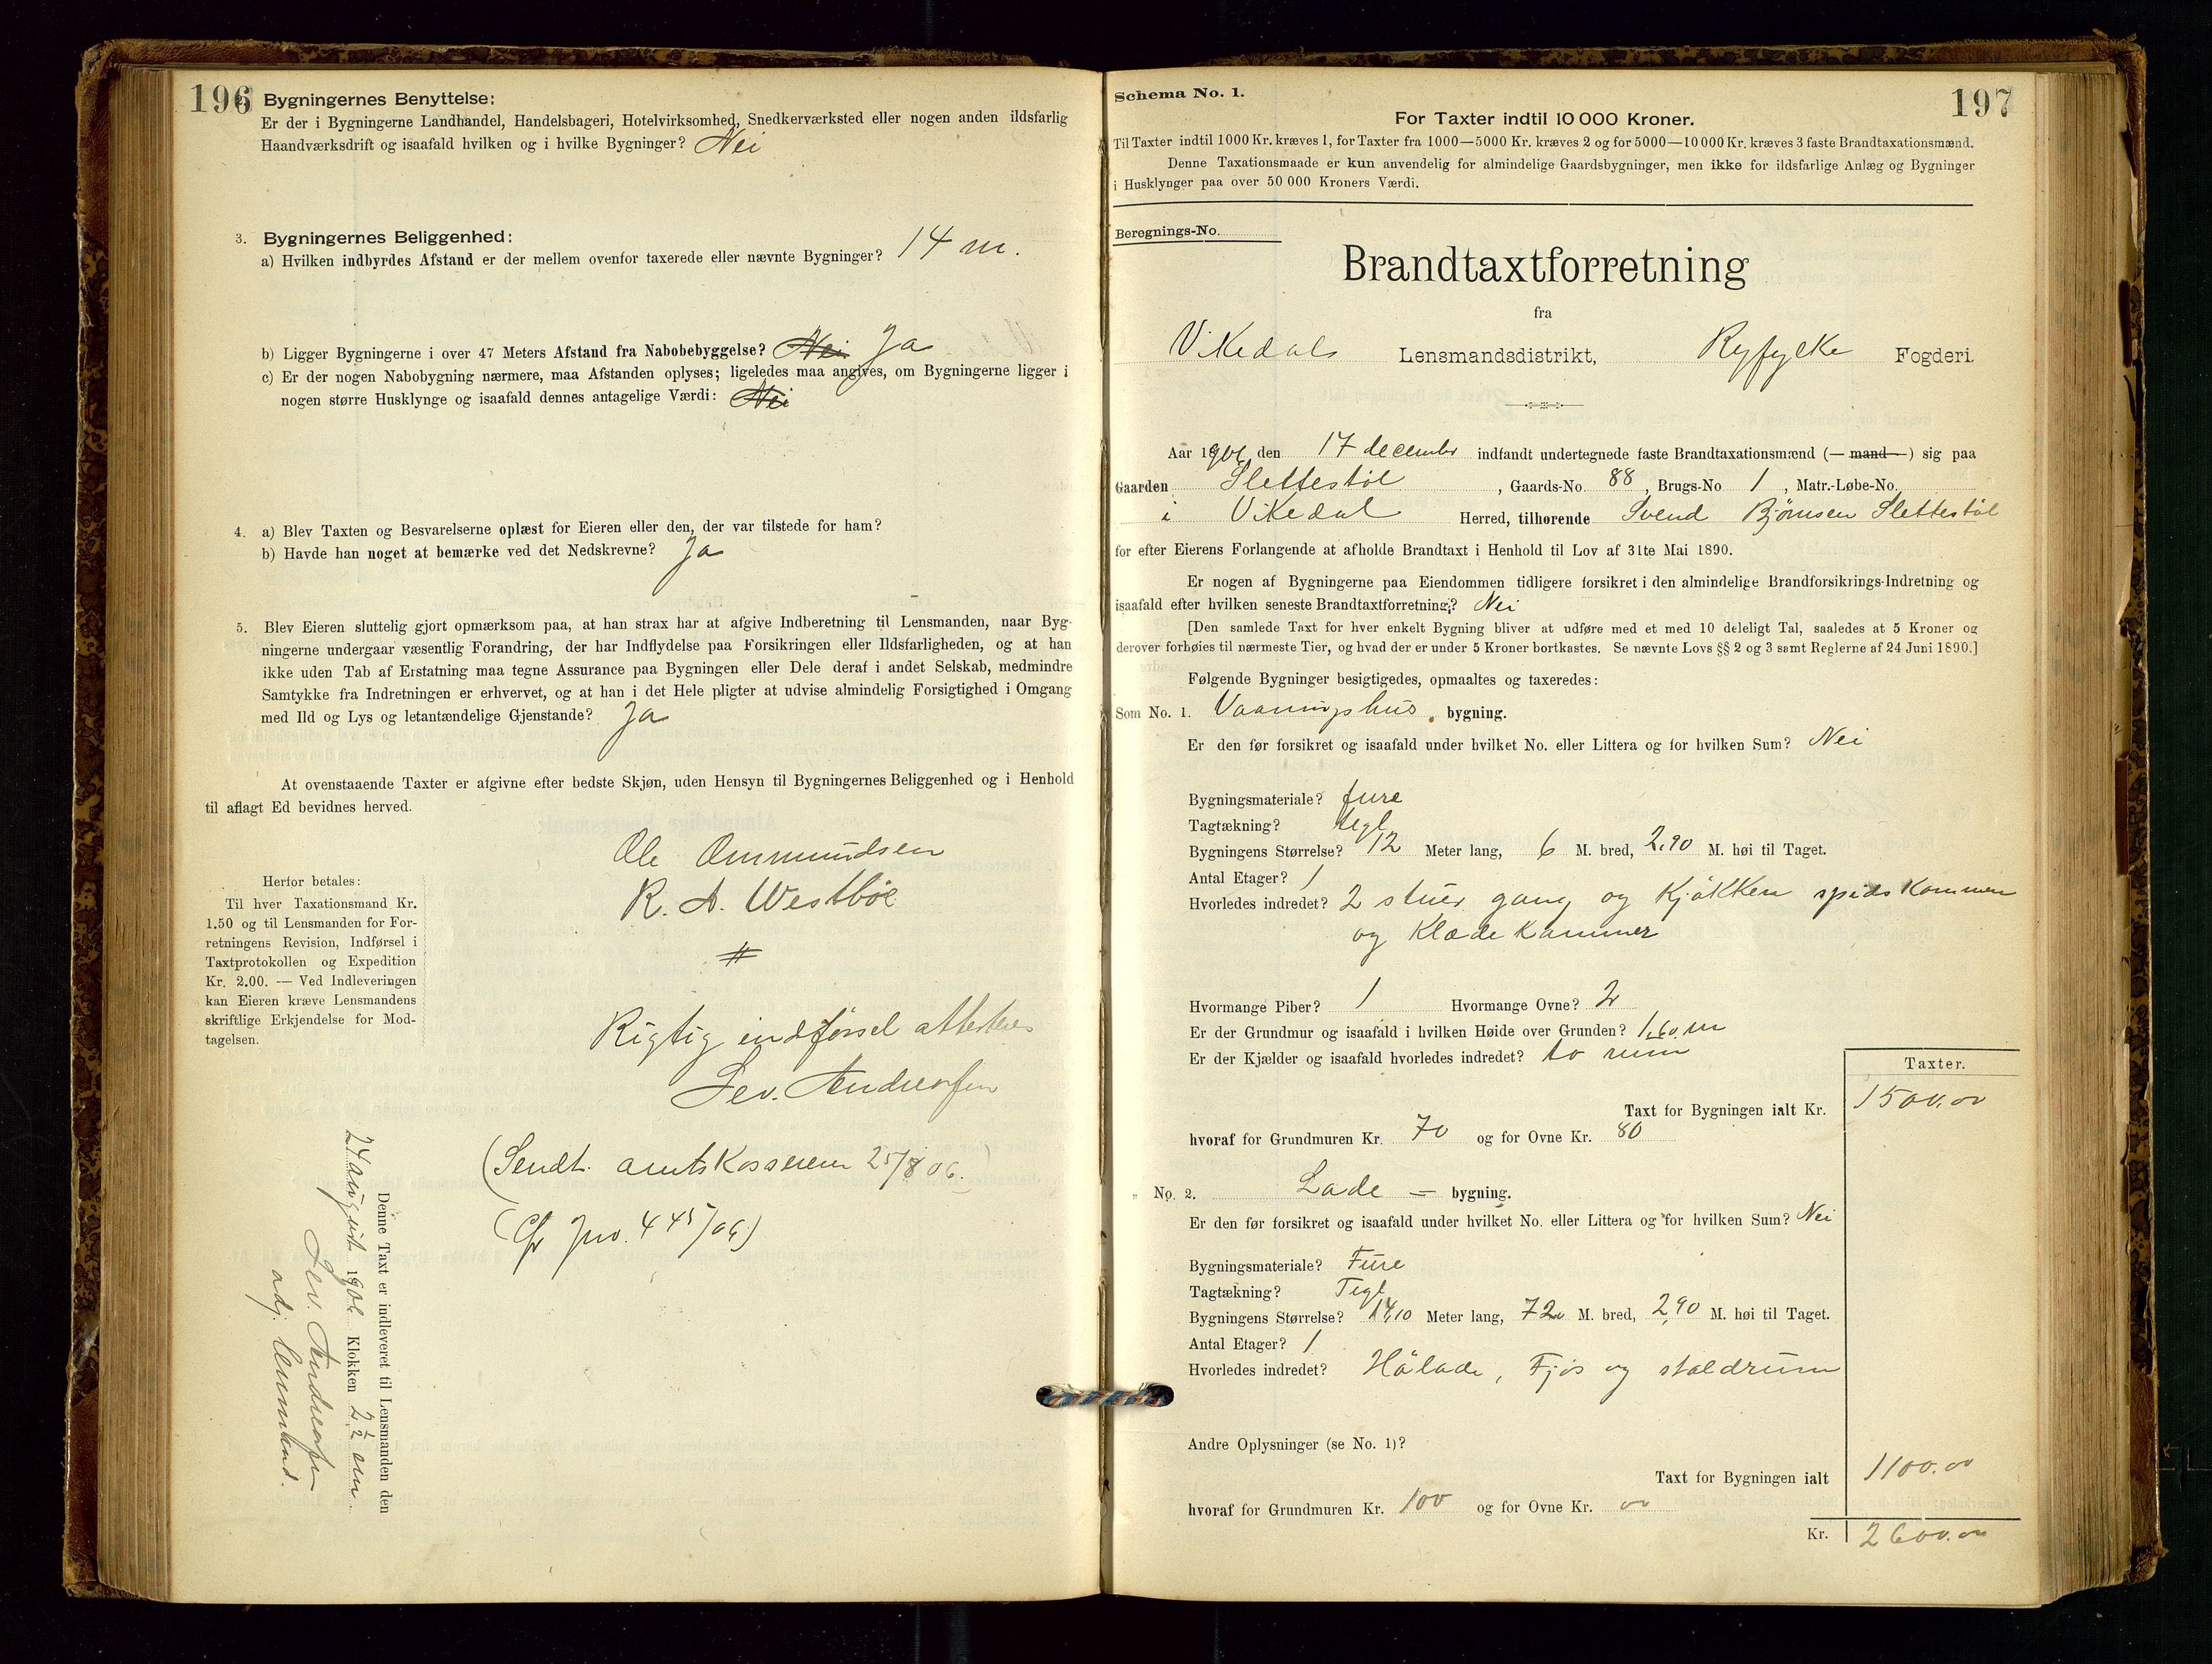 196 Bygningernes Benyttelse:
Er der i Bygningerne Landhandel, Handelsbageri, Hotelvirksomhed, Snedkerværksted eller nogen anden ildsfarlig
Haandværksdrift og isaafald hvilken og i hvilke Bygninger? Nei
3. Bygningernes Beliggenhed:
a) Hvilken indbyrdes Afstand er der mellem ovenfor taxerede eller nævnte Bygninger? 14 m.
b) Ligger Bygningerne i over 47 Meters Afstand fra Nabobebyggelse? Nei Ja
c) Er der nogen Nabobygning nærmere, maa Afstanden oplyses; ligeledes maa angives, om Bygningerne ligger i
nogen større Husklynge og isaafald dennes antagelige Værdi: Nei
4. a) Blev Taxten og Besvarelserne oplæst for Eieren eller den, der var tilstede for ham?
b) Havde han noget at bemærke ved det Nedskrevne? Ja
5. Blev Eieren sluttelig gjort opmærksom paa, at han strax har at afgive Indberetning til Lensmanden, naar Byg-
ningerne undergaar væsentlig Forandring, der har Indflydelse paa Forsikringen eller Ildsfarligheden, og at han
ikke uden Tab af Erstatning maa tegne Assurance paa Bygningen eller Dele deraf i andet Selskab, medmindre
Samtykke fra Indretningen er erhvervet, og at han i det Hele pligter at udvise almindelig Forsigtighed i Omgang
med Ild og Lys og letantændelige Gjenstande? Ja
At ovenstaaende Taxter er afgivne efter bedste Skjøn, uden Hensyn til Bygningernes Beliggenhed og i Henhold
til aflagt Ed bevidnes herved.
Ole Ommundsen
R. A. Westbøe
#
Herfor betales:
Til hver Taxationsmand Kr.
1.50 og til Lensmanden for For-
retningens Revision, Indførsel i
Taxtprotokollen og Expedition
Kr. 2.00. — Ved Indleveringen
kan Eieren kræve Lensmandens
skriftlige Erkjendelse for Mod-
tagelsen.
Rigtig indførsel attesteres
Sev. Andreassen
(Sendt. amtskassereren 25/8 06.)
(Cfr Jnr. 445/06)
Denne Taxt er indleveret til Lensmanden den
24 august 1906 Klokken 2 1/2 em.
Sev. Andreassen
adj. lensmand.
Schema No. 1. 197
For Taxter indtil 10 000 Kroner.
Til Taxter indtil 1000 Kr. kræves 1, for Taxter fra 1000—5000 Kr. kræves 2 og for 5000—10 000 Kr. kræves 3 faste Brandtaxationsmænd.
Denne Taxationsmaade er kun anvendelig for almindelige Gaardsbygninger, men ikke for ildsfarlige Anlæg og Bygninger
i Husklynger paa over 50 000 Kroners Værdi.
Beregnings-No.
Brandtaxtforretning
fra
Vikedals Lensmandsdistrikt, Ryfylke Fogderi.
Aar 1906 den 17 decembr indfandt undertegnede faste Brandtaxationsmænd (— mand —) sig paa
Gaarden Slettestøl, Gaards-No. 88, Brugs-No 1, Matr.-Løbe-No.
i Vikedal Herred, tilhørende Svend Bjørnsen Slettestøl
for efter Eierens Forlangende at afholde Brandtaxt i Henhold til Lov af 31te Mai 1890.
Er nogen af Bygningerne paa Eiendommen tidligere forsikret i den almindelige Brandforsikrings-Indretning og
isaafald efter hvilken seneste Brandtaxtforretning? Nei
[Den samlede Taxt for hver enkelt Bygning bliver at udføre med et med 10 deleligt Tal, saaledes at 5 Kroner og
derover forhøies til nærmeste Tier, og hvad der er under 5 Kroner bortkastes. Se nævnte Lovs §§ 2 og 3 samt Reglerne af 24 Juni 1890.]
Følgende Bygninger besigtigedes, opmaaltes og taxeredes:
Som No. 1. Vaaningshus bygning.
Er den før forsikret og isaafald under hvilket No. eller Littera og for hvilken Sum? Nei
Bygningsmateriale? fure
Tagtækning? tegl
Bygningens Størrelse? 12 Meter lang, 6 M. bred, 2.90 M. høi til Taget.
Antal Etager? 1
Hvorledes indredet? 2 stuer gang og Kjøkken spidskammer
og Klædekammer
Hvormange Piber? 1 Hvormange Ovne? 2
Er der Grundmur og isaafald i hvilken Høide over Grunden? 1.60 m
Er der Kjælder og isaafald hvorledes indredet? to rum
Taxter.
Taxt for Bygningen ialt Kr. 1500.00
hvoraf for Grundmuren Kr. 70 og for Ovne Kr. 80
" No. 2. Lade — bygning.
Er den før forsikret og isaafald under hvilket No. eller Littera og for hvilken Sum? Nei
Bygningsmateriale? Fure
Tagtækning? Tegl
Bygningens Størrelse? 14,10 Meter lang, 7 20 M. bred, 2,90 M. høi til Taget.
Antal Etager? 1
Hvorledes indredet? Hölade, Fjøs og staldrum
Andre Oplysninger (se No. 1)?
Taxt for Bygningen ialt 1100.00
hvoraf for Grundmuren Kr. 100 og for Ovne Kr. 00
Kr. 2600.00